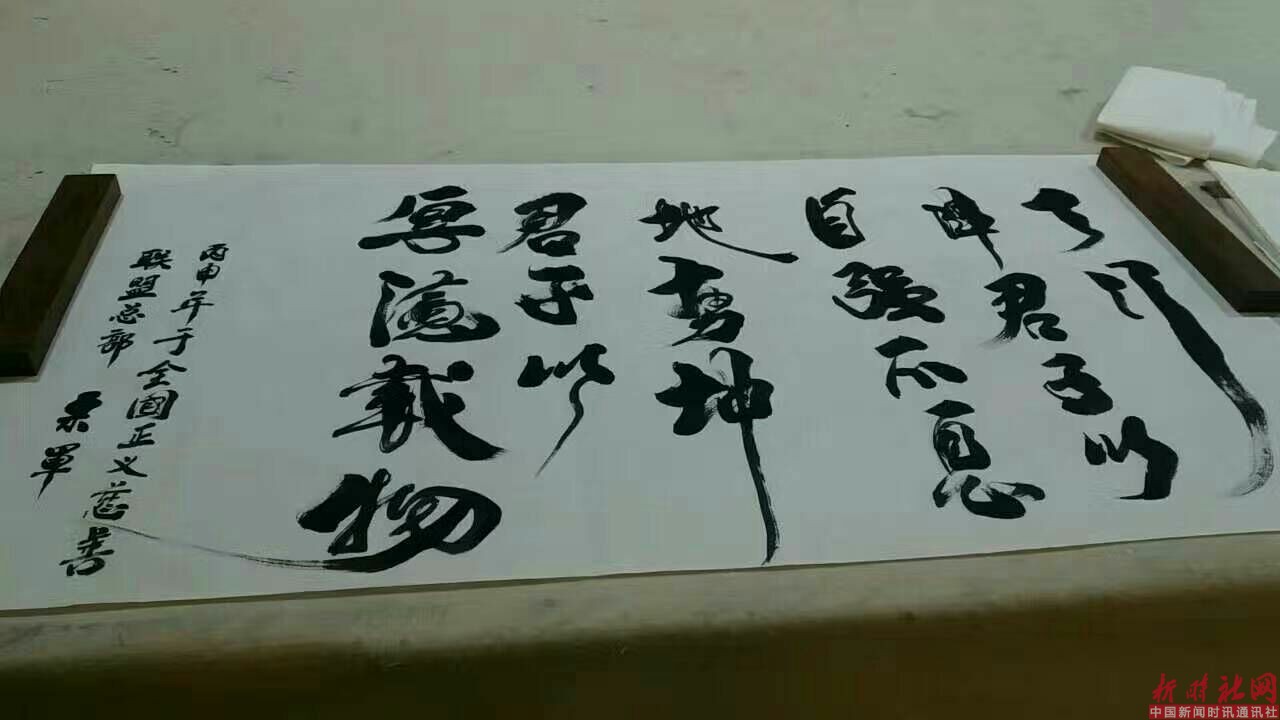 天行
健君子以
自强不息
地势坤
君子以
厚德载物
丙申年于全国正义慈善
联盟总部
軍
新时社网
中国新闻时讯通讯社